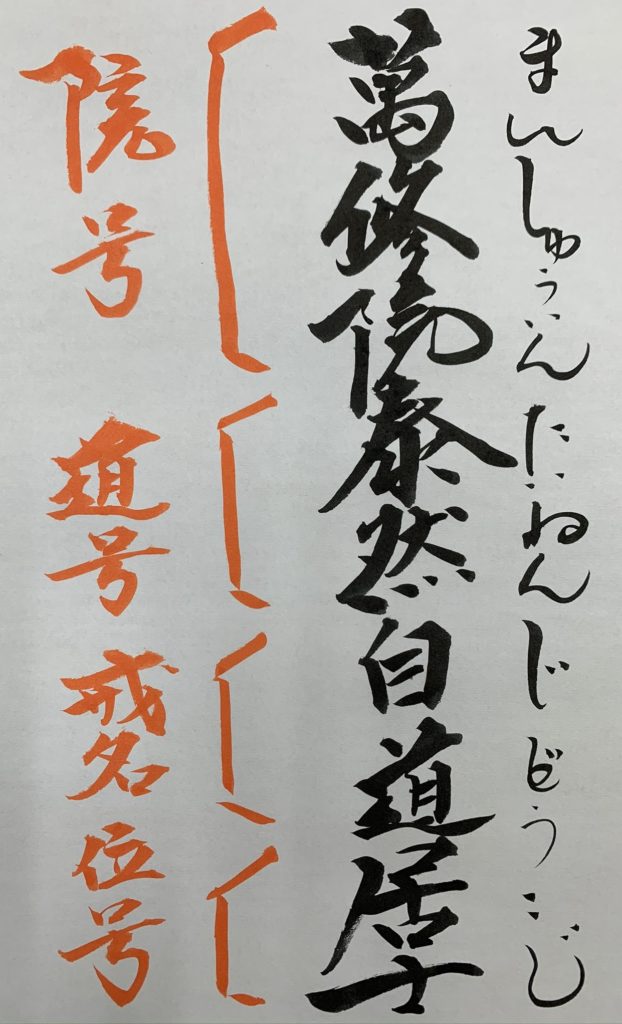 まんしゅういんたいねんじどうこじ
萬修院泰然自道居士
院号
道号
戒名
位号